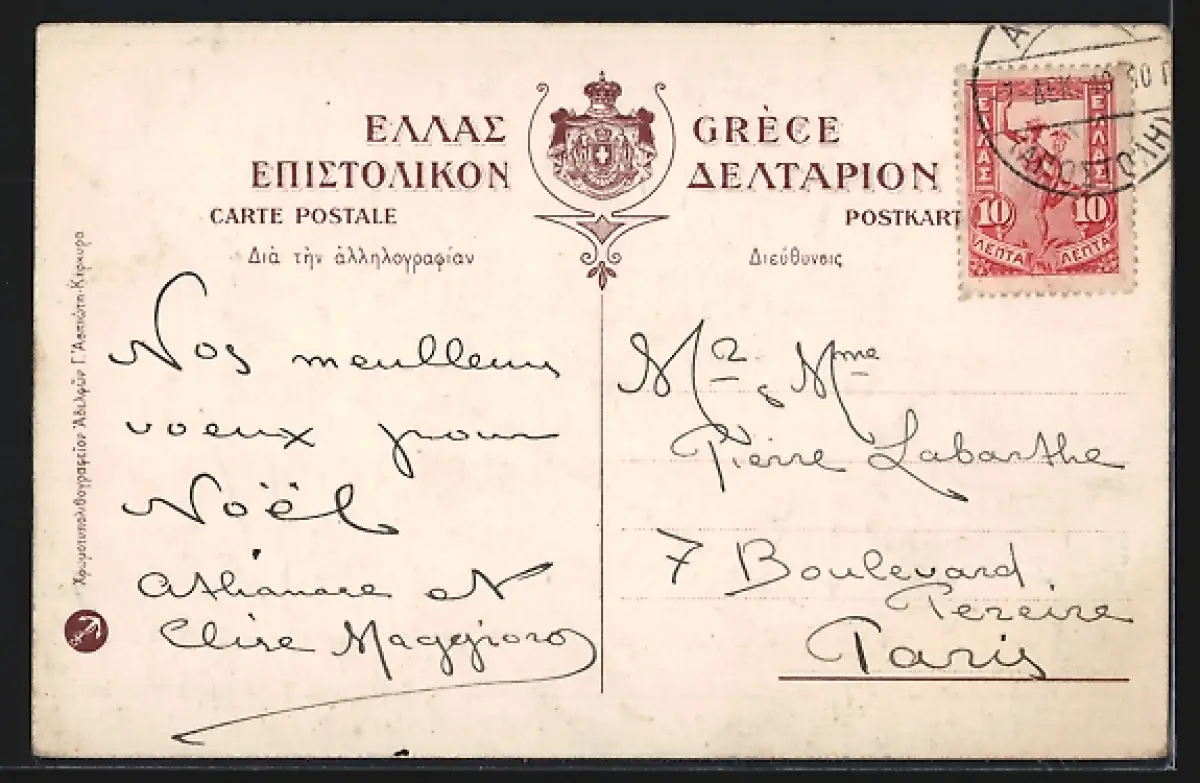 ΕΛΛΑΣ GRÈCE
ΕΠΙΣΤΟΛΙΚΟΝ ΔΕΛΤΑΡΙΟΝ
CARTE POSTALE POSTKART
Διὰ τὴν ἀλληλογραφίαν Διεύθυνσις
Χρωμοτυπολιθογραφεῖον Ἀδελφῶν Γ. Ἀσπιώτη-Κέρκυρα
Nos meilleurs
voeux pour
Noël
Athanase et
Claire Maggioros
Mr & Mme
Pierre Labarthe
7 Boulevard
Pereire
Paris
ΕΛΛΑΣ ΕΛΛΑΣ
10 10
ΛΕΠΤΑ ΛΕΠΤΑ
ΔΕΚ